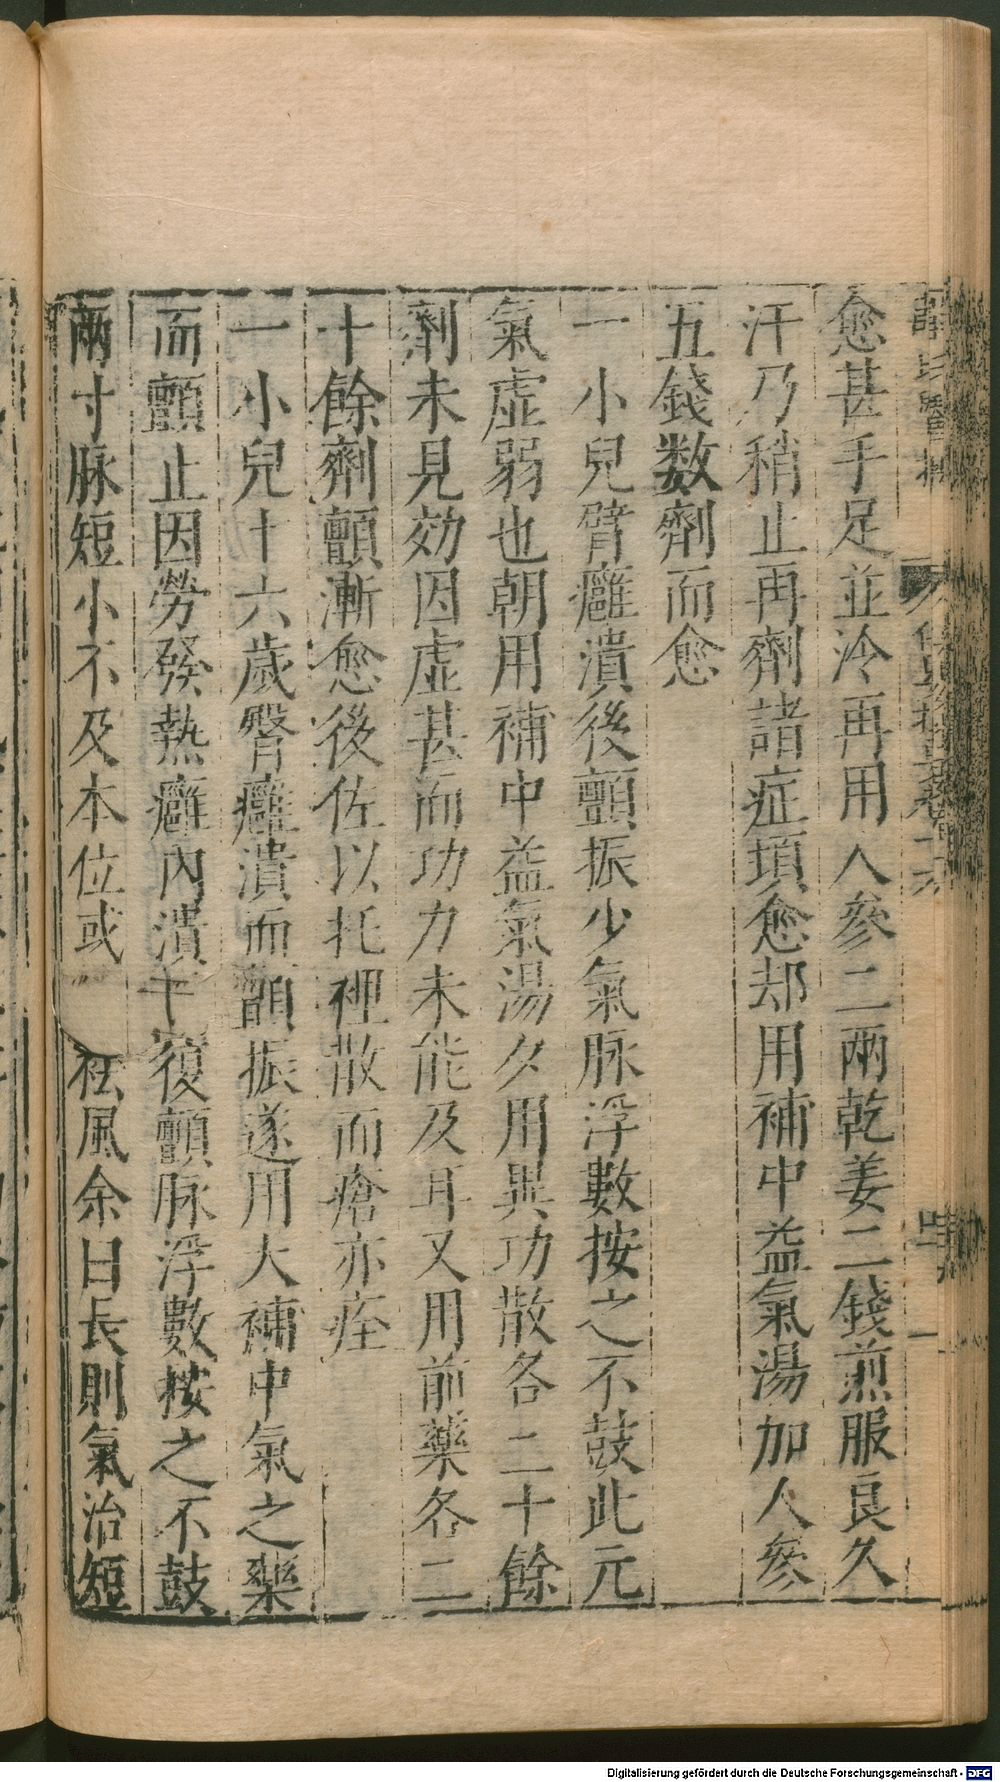 愈甚手足並冷再用人參二兩乾姜二錢煎服良久
汗乃稍止再劑諸症頓愈却用補中益氣湯加人參
五錢数劑而愈
一小兒臂癰潰後顫振少氣脉浮數按之不鼓此元
氣虛弱也朝用補中益氣湯夕用異功散各二十餘
劑未見効因虛甚而功力未能及耳又用前藥各二
十餘劑顫漸愈後佐以托裡散而瘡亦痊
一小兒十六歲臀癰潰而顫振遂用大補中氣之藥
而顫止因勞發熱癰內潰干復顫脉浮數按之不鼓
兩寸脉短小不及本位或祛風余曰長則氣治短
Digitalisierung gefördert durch die Deutsche Forschungsgemeinschaft - DFG